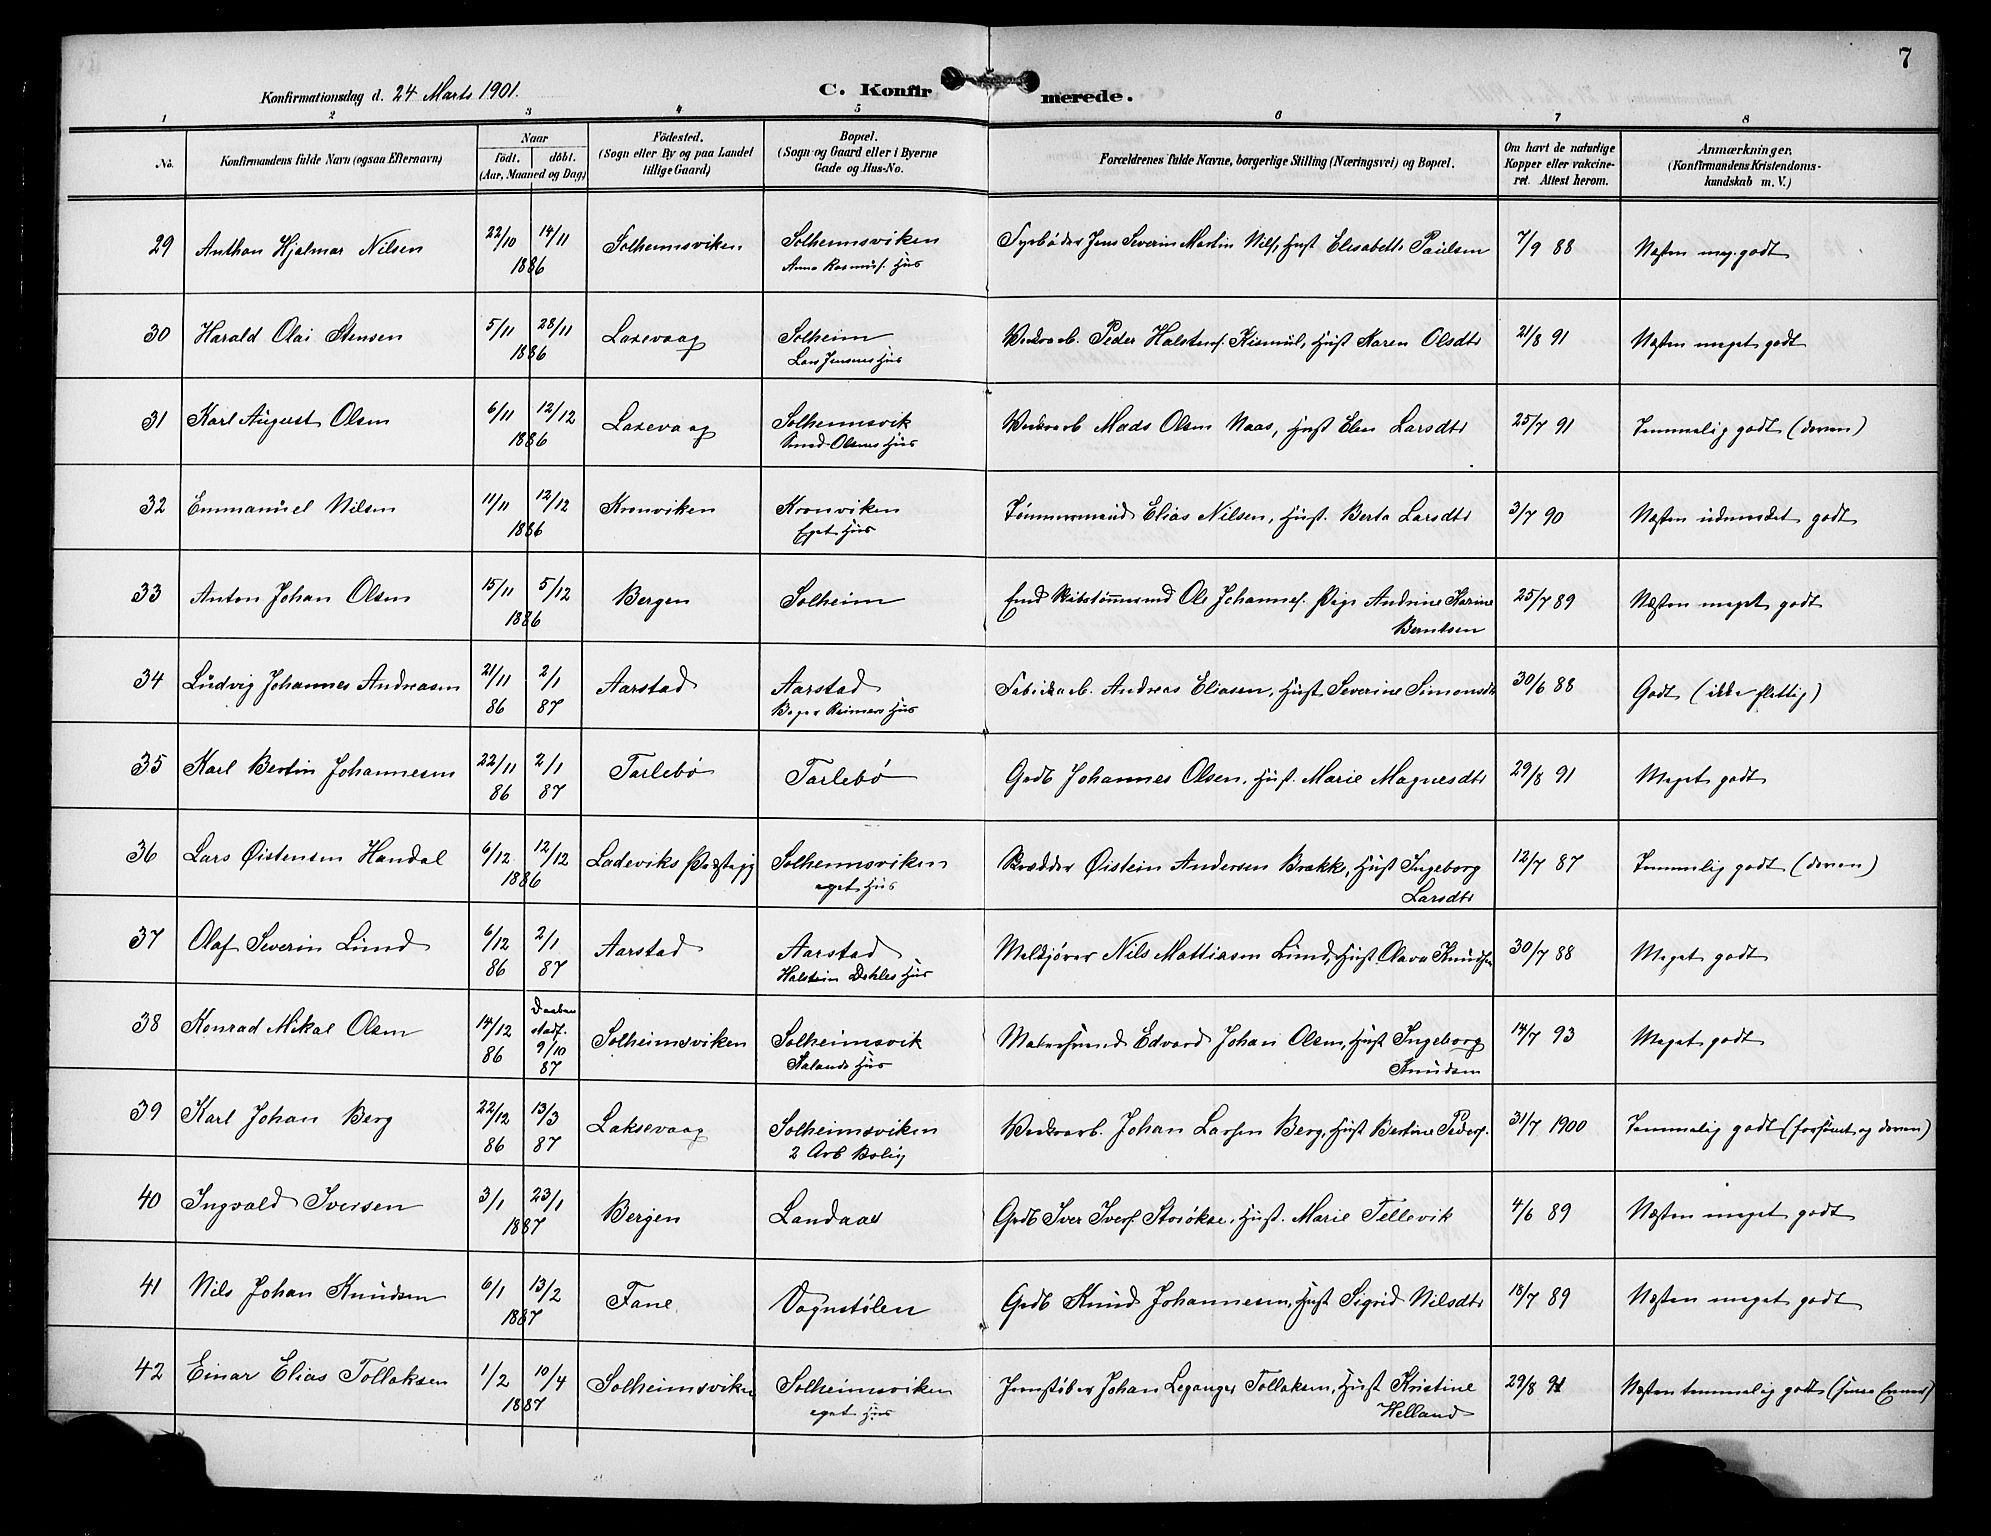 7
Konfirmationsdag d. 24 Marts 1901.
C. Konfirmerede.
1 2 3 4 5 6 7 8
No. Konfirmandens fulde Navn (ogsaa Efternavn) Naar født. døbt. (Aar, Maaned og Dag) Fødested. (Sogn eller By og paa Landet tillige Gaard) Bopæl. (Sogn og Gaard eller i Byerne Gade og Hus-No. Forældrenes fulde Navne, borgerlige Stilling (Næringsvei) og Bopæl. Om havt de naturlige Kopper eller vakcineret. Attest herom. Anmærkninger. (Konfirmandens Kristendomskundskab m. V.)
29 Anthon Hjalmar Nilsen 22/10 14/11 1886 Solheimsviken Solheimsviken Fyrbøder Jens Severin Martin Nils. Hust Elisabeth Paulsen 7/9 88 Næsten meg. godt
Anna Rasmus. Hus
30 Harald Olai Stensen 5/11 28/11 1886 Laxevaag Solheim Peder Halstens. Hust Karen Olsdtr 21/8 91 Næsten meget godt
Lars Jensens Hus
31 Karl August Olsen 6/11 12/12 1886 Laxevaag Solheimsvik Mads Olsen Naas, Hust Elen Larsdtr 25/7 91 Temmelig godt (doven)
Smed Olsens Hus
32 Emmanuel Nilsen 11/11 12/12 1886 Kronviken Kronviken Tømmermand Elias Nilsen, Hust. Berta Larsdtr 3/7 90 Næsten udmerket godt
Eget Hus
33 Anton Johan Olsen 15/11 5/12 1886 Bergen Solheim Ole Johannes. Pige Andrine Karine 25/7 89 Næsten meget godt
Berntsen
34 Ludvig Johannes Andreasen 21/11 86 2/1 87 Aarstad Aarstad Fabrikarb. Andreas Eliasen, Hust Severine Simonsdtr 30/6 88 Godt (ikke flittig)
Bager Reimers Hus
35 Karl Bertin Johannesen 22/11 86 2/1 87 Tarlebø Tarlebø Grdb Johannes Olsen, Hust. Marie Magnesdtr 29/8 91 Meget godt
36 Lars Øistensen Handal 6/12 12/12 1886 Ladeviks Præstegj Solheimsviken Skrædder Øistein Andersen Brække, Hust Ingeborg 12/7 87 Temmelig godt (doven)
eget Hus Larsdtr
37 Olaf Severin Lund 6/12 86 2/1 87 Aarstad Aarstad Melkjører Nils Mattiasen Lund, Hust Olava Knudsen 30/7 88 Meget godt
Halstein Dehles Hus
38 Konrad Mikal Olsen 14/12 86 Daaben stadf. 9/10 87 Solheimsviken Solheimsvik Edvard Johan Olsen, Hust Ingeborg 14/7 93 Meget godt
Kalands Hus Knudsen
39 Karl Johan Berg 22/12 86 13/3 87 Laksevaag Solheimsviken Johan Larsen Berg, Hust Bertine Peders. 31/7 1900 Temmelig godt (forsømt og doven)
2 Arb Bolig
40 Ingvald Iversen 3/1 23/1 1887 Bergen Landaas Grdb Iver Ivers. Hust. Marie Tellevik 4/6 89 Næsten meget godt
41 Nils Johan Knudsen 6/1 13/2 1887 Fane Vognstølen Grdb Knud Johannesen, Hust Sigrid Nilsdtr 18/7 89 Næsten meget godt
42 Einar Elias Tollaksen 1/2 10/4 1887 Solheimsviken Solheimsviken Jernstøber Johan Leganger Tollaksen, Hust Kristine 29/8 91 Næsten temmelig godt
eget Hus Helland